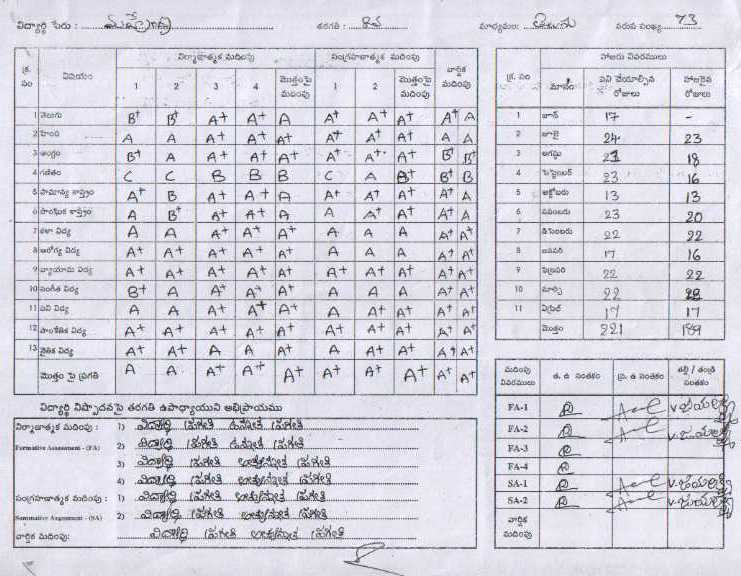 విద్యార్థి పేరు : మహేంద్ర తరగతి : 8వ మాధ్యమం: తెలుగు వరుస సంఖ్య 73
క్ర. సం విషయం నిర్మాణాత్మక మదింపు సంగ్రహణాత్మక మదింపు వార్షిక మదింపు
1 2 3 4 మొత్తంపై మదింపు 1 2 మొత్తంపై మదింపు
1 తెలుగు B+ B+ A+ A+ A A+ A+ A+ A+ A
2 హింది A A A+ A+ A+ A+ A+ A+ A A
3 ఆంగ్లం B+ A A+ A+ A+ A+ A+ A+ B+ B+
4 గణితం C C B B B C A B+ B+ B
5 సామాన్య శాస్త్రం A+ B A+ A+ A A+ A+ A+ A+ A
6 సాంఘిక శాస్త్రం A B+ A+ A+ A A A+ A+ A+ A
7 కళా విద్య A A A+ A+ A+ A A A A+ A+
8 ఆరోగ్య విద్య A+ A+ A+ A+ A+ A A A A+ A+
9 వ్యాయామ విద్య A+ A+ A+ A+ A+ A+ A+ A+ A+ A+
10 సంగీత విద్య B+ A A+ A+ A+ A A A A+ A+
11 పని విద్య A A A+ A+ A+ A A+ A+ A+ A+
12 సాంకేతిక విద్య A+ A+ A+ A+ A+ A+ A+ A+ A+ A+
13 నైతిక విద్య A+ A+ A A A+ A A+ A+ A+ A+
మొత్తం పై ప్రగతి A A A+ A+ A+ A+ A+ A+ A+ A+
హాజరు వివరములు
క్ర. సం మాసం పని చేయాల్సిన రోజులు హాజరైన రోజులు
1 జూన్ 17 -
2 జూలై 24 23
3 ఆగష్టు 21 18
4 సెప్టెంబర్ 23 16
5 అక్టోబరు 13 13
6 నవంబరు 23 20
7 డిసెంబరు 22 22
8 జనవరి 17 16
9 ఫిబ్రవరి 22 22
10 మార్చి 22
11 ఏప్రిల్ 17 17
మొత్తం 221 189
విద్యార్థి నిష్పాదనపై తరగతి ఉపాధ్యాయుని అభిప్రాయము
నిర్మాణాత్మక మదింపు : 1) విద్యార్థి ప్రగతి
Formative Assessment - (FA) 2) విద్యార్థి ప్రగతి
3) విద్యార్థి ప్రగతి అత్యున్నత ప్రగతి
4) విద్యార్థి ప్రగతి అత్యున్నత ప్రగతి
సంగ్రహణాత్మక మదింపు : 1) విద్యార్థి ప్రగతి అత్యున్నత ప్రగతి
Summative Assessment - (SA) 2) విద్యార్థి ప్రగతి అత్యున్నత ప్రగతి
వార్షిక మదింపు: విద్యార్థి ప్రగతి అత్యున్నత ప్రగతి
మదింపు వివరములు త. ఉ సంతకం ప్ర. ఉ సంతకం తల్లి / తండ్రి సంతకం
FA-1
FA-2
FA-3
FA-4
SA-1
SA-2
వార్షిక మదింపు